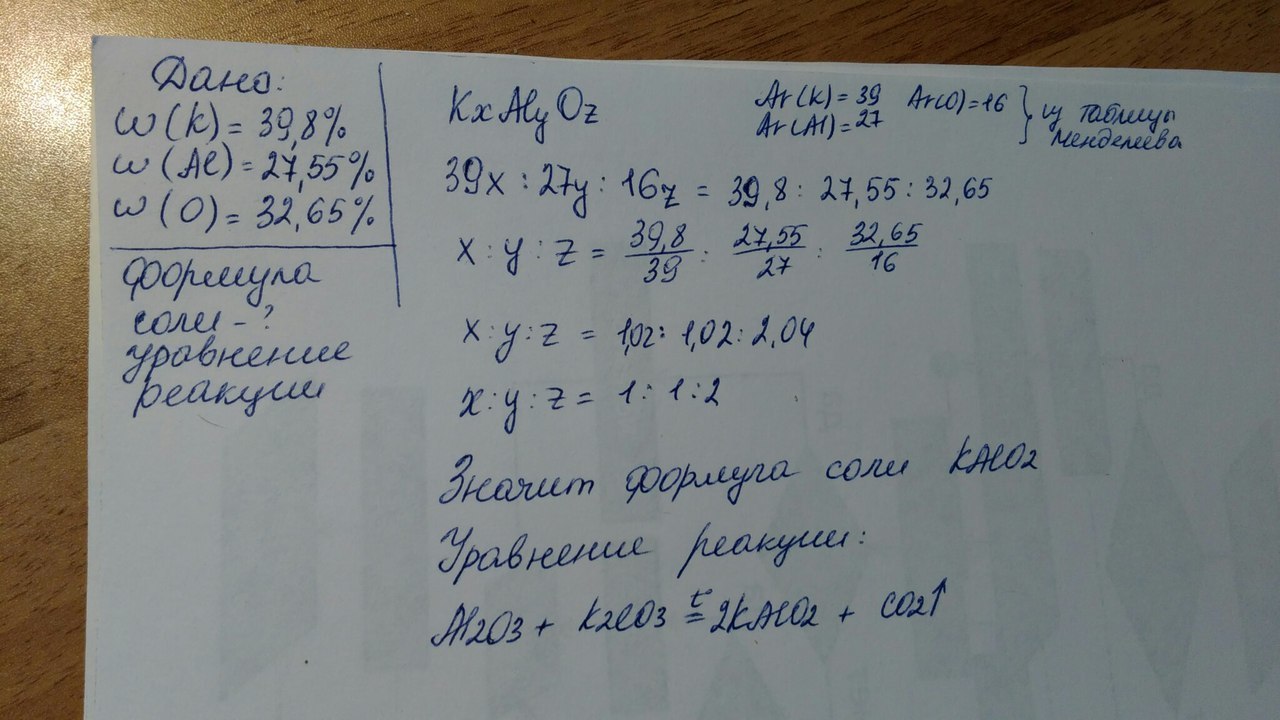 Дано:
ω(K) = 39,8%
ω(Al) = 27,55%
ω(O) = 32,65%
формула
соли - ?
уравнение
реакции
KxAlyOz
Ar(K) = 39 Ar(O) = 16
Ar(Al) = 27
из таблицы
Менделеева
39x : 27y : 16z = 39,8 : 27,55 : 32,65
x : y : z = 39,8/39 : 27,55/27 : 32,65/16
x : y : z = 1,02 : 1,02 : 2,04
x : y : z = 1 : 1 : 2
Значит формула соли KAlO2
Уравнение реакции:
Al2O3 + K2CO3 =t 2KAlO2 + CO2↑